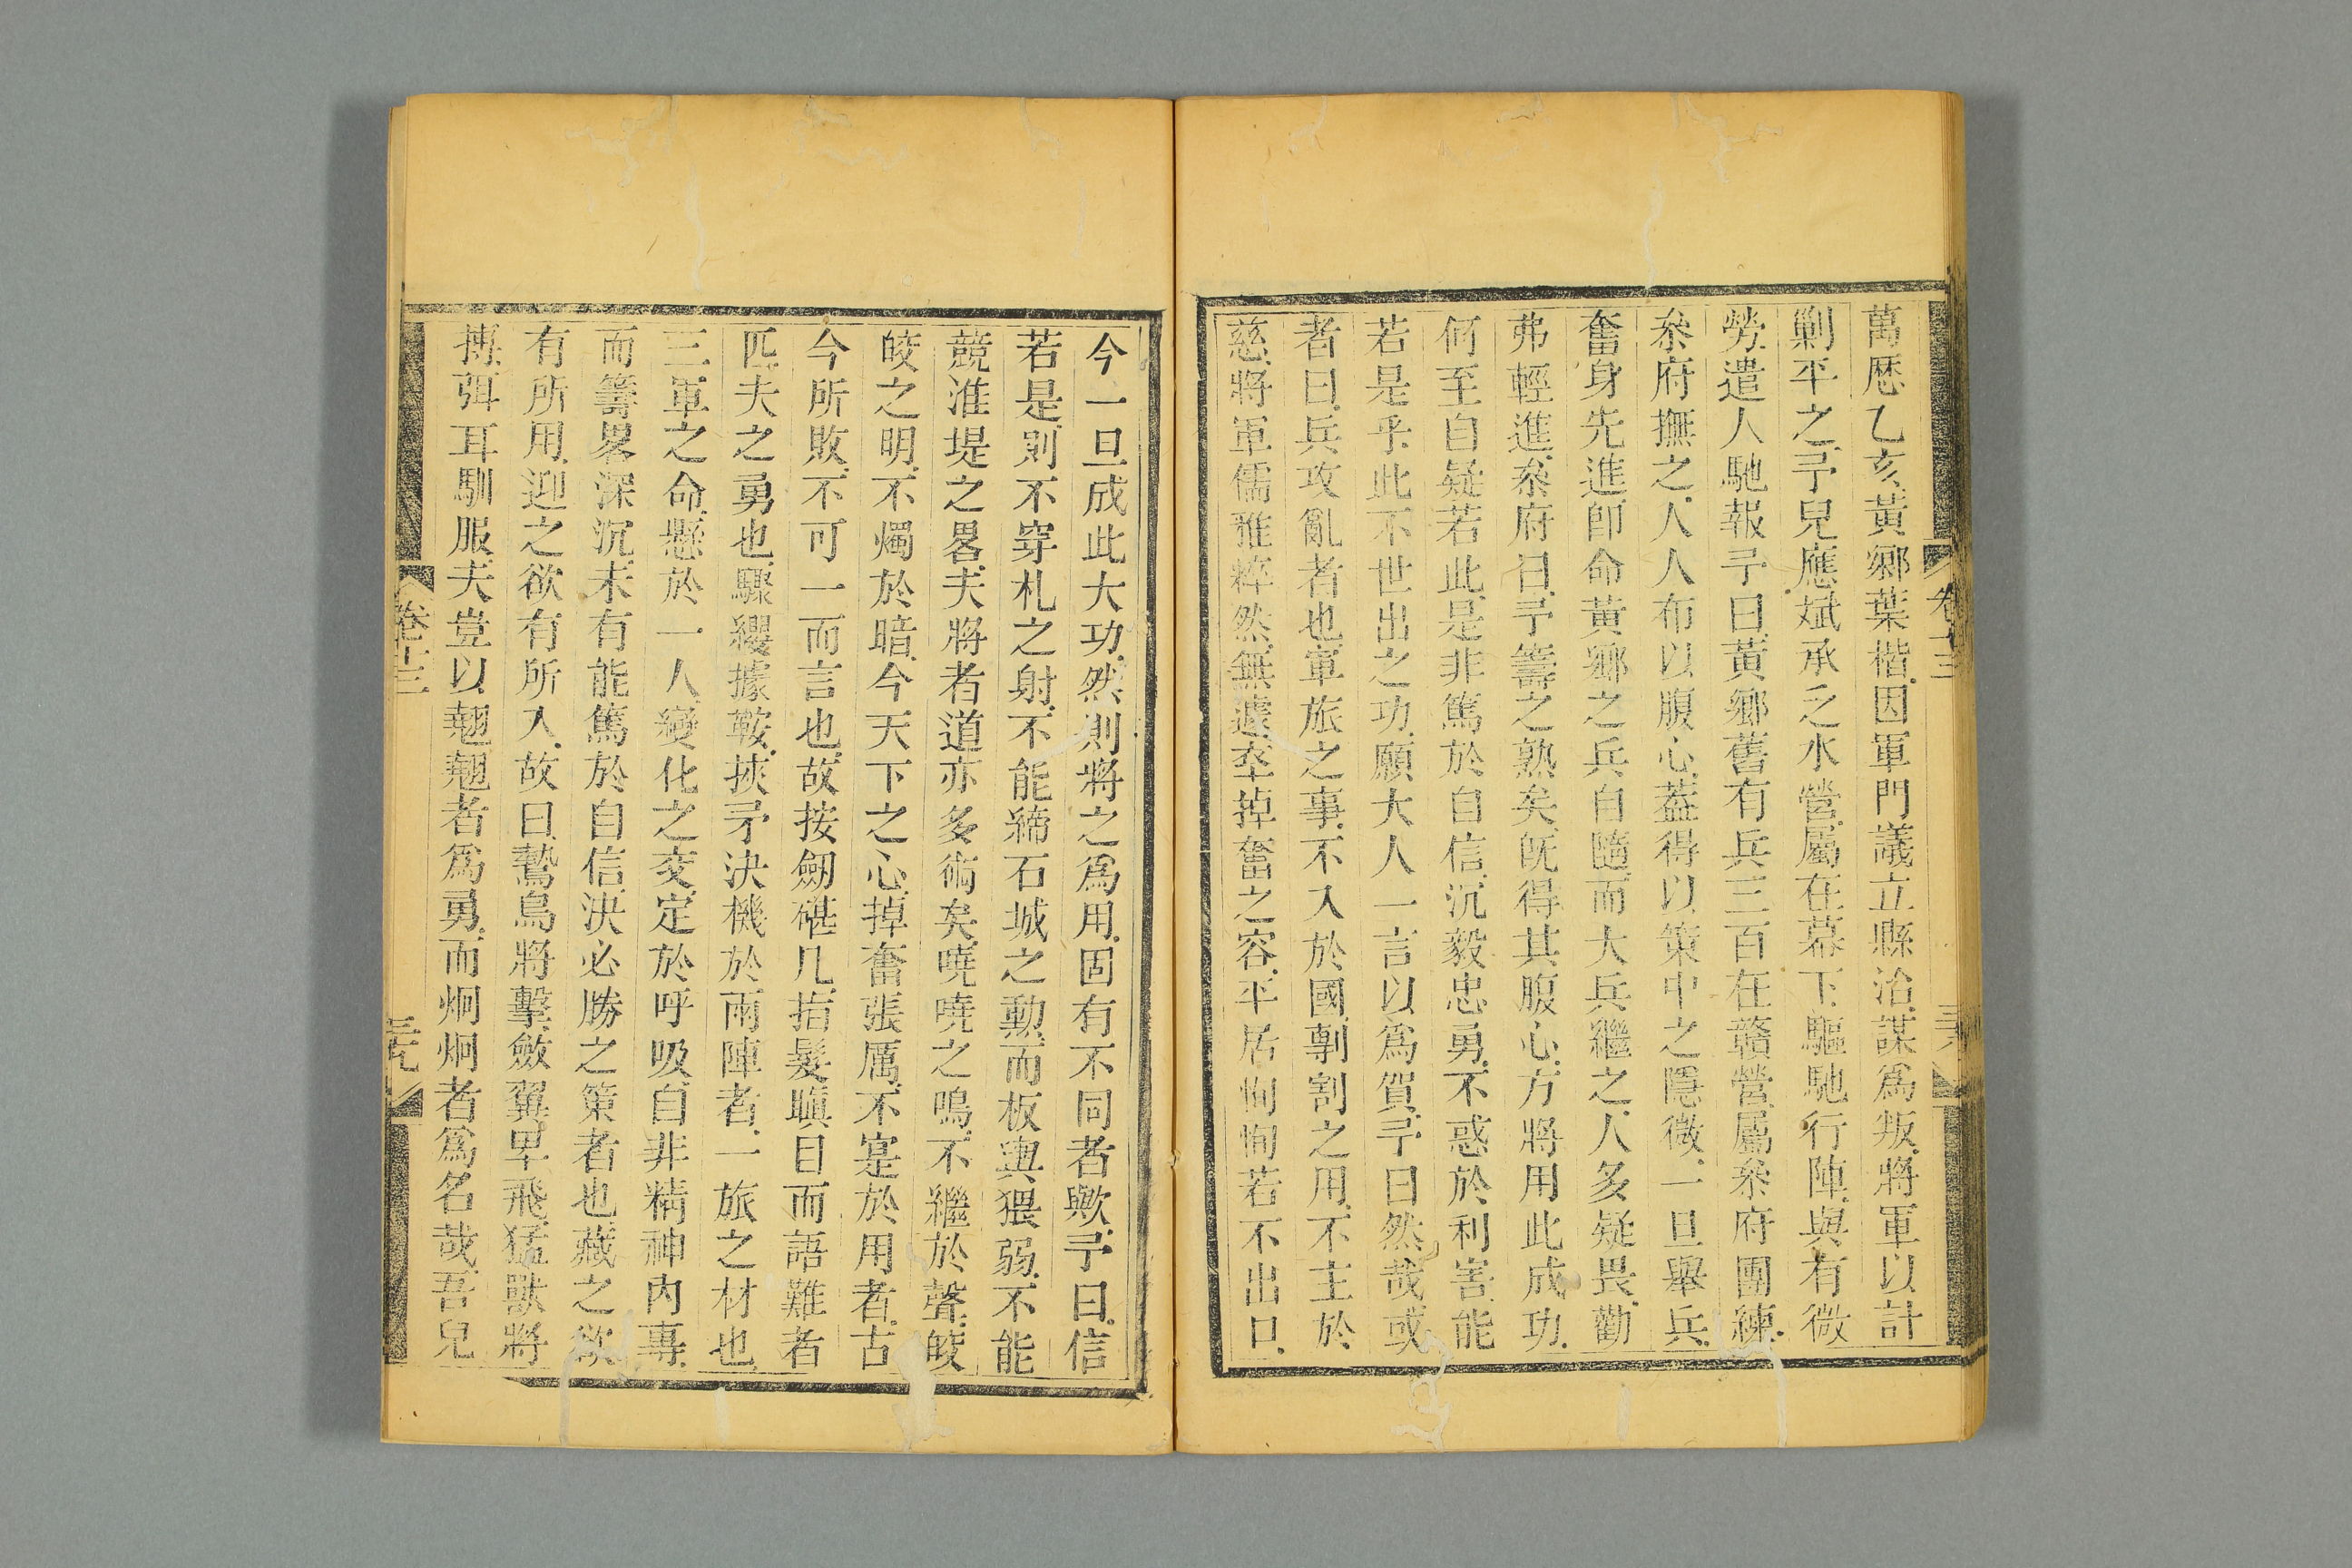 萬歷乙亥黃鄉葉楷因軍門議立縣治謀爲叛將軍以計
剿平之予兒應斌承乏水營屬在幕下驅馳行陣與有微
勞遣人馳報予曰黃鄉舊有兵三百在贛營屬叅府團練
叅府撫之人人布以腹心葢得以策中之隱微一旦舉兵
奮身先進卽命黃鄉之兵自隨而大兵繼之人多疑畏勸
弗輕進叅府曰予籌之熟矣旣得其腹心方將用此成功
何至自疑若此是非篤於自信沉毅忠勇不惑於利害能
若是乎此不世出之功願大人一言以爲賀予曰然哉或
者曰兵攻亂者也軍旅之事不入於國剸割之用不主於
慈將軍儒雅粹然無遽掉奮之容平居恂恂若不出口
卷十三
今一旦成此大功然則將之爲用固有不同者歟予曰信
若是則不穿札之射不能締石城之勳而板輿猥弱不能
競淮堤之畧夫將者道亦多術矣嘵嘵之鳴不繼於聲皎
皎之明不燭於暗今天下之心掉奮張厲不寔於用者古
今所敗不可一而言也故按劒磓几指髮瞋目而語難者
匹夫之勇也驟纓據鞍挾矛決機於兩陣者一旅之材也
三軍之命懸於一人變化之交定於呼吸自非精神內專
而籌畧深沉未有能篤於自信決必勝之策者也藏之欲
有所用迎之欲有所入故曰鷙鳥將擊斂翼卑飛猛獸將
搏弭耳馴服夫豈以翹翹者爲勇而炯炯者爲名哉吾兒
卷十三
三九